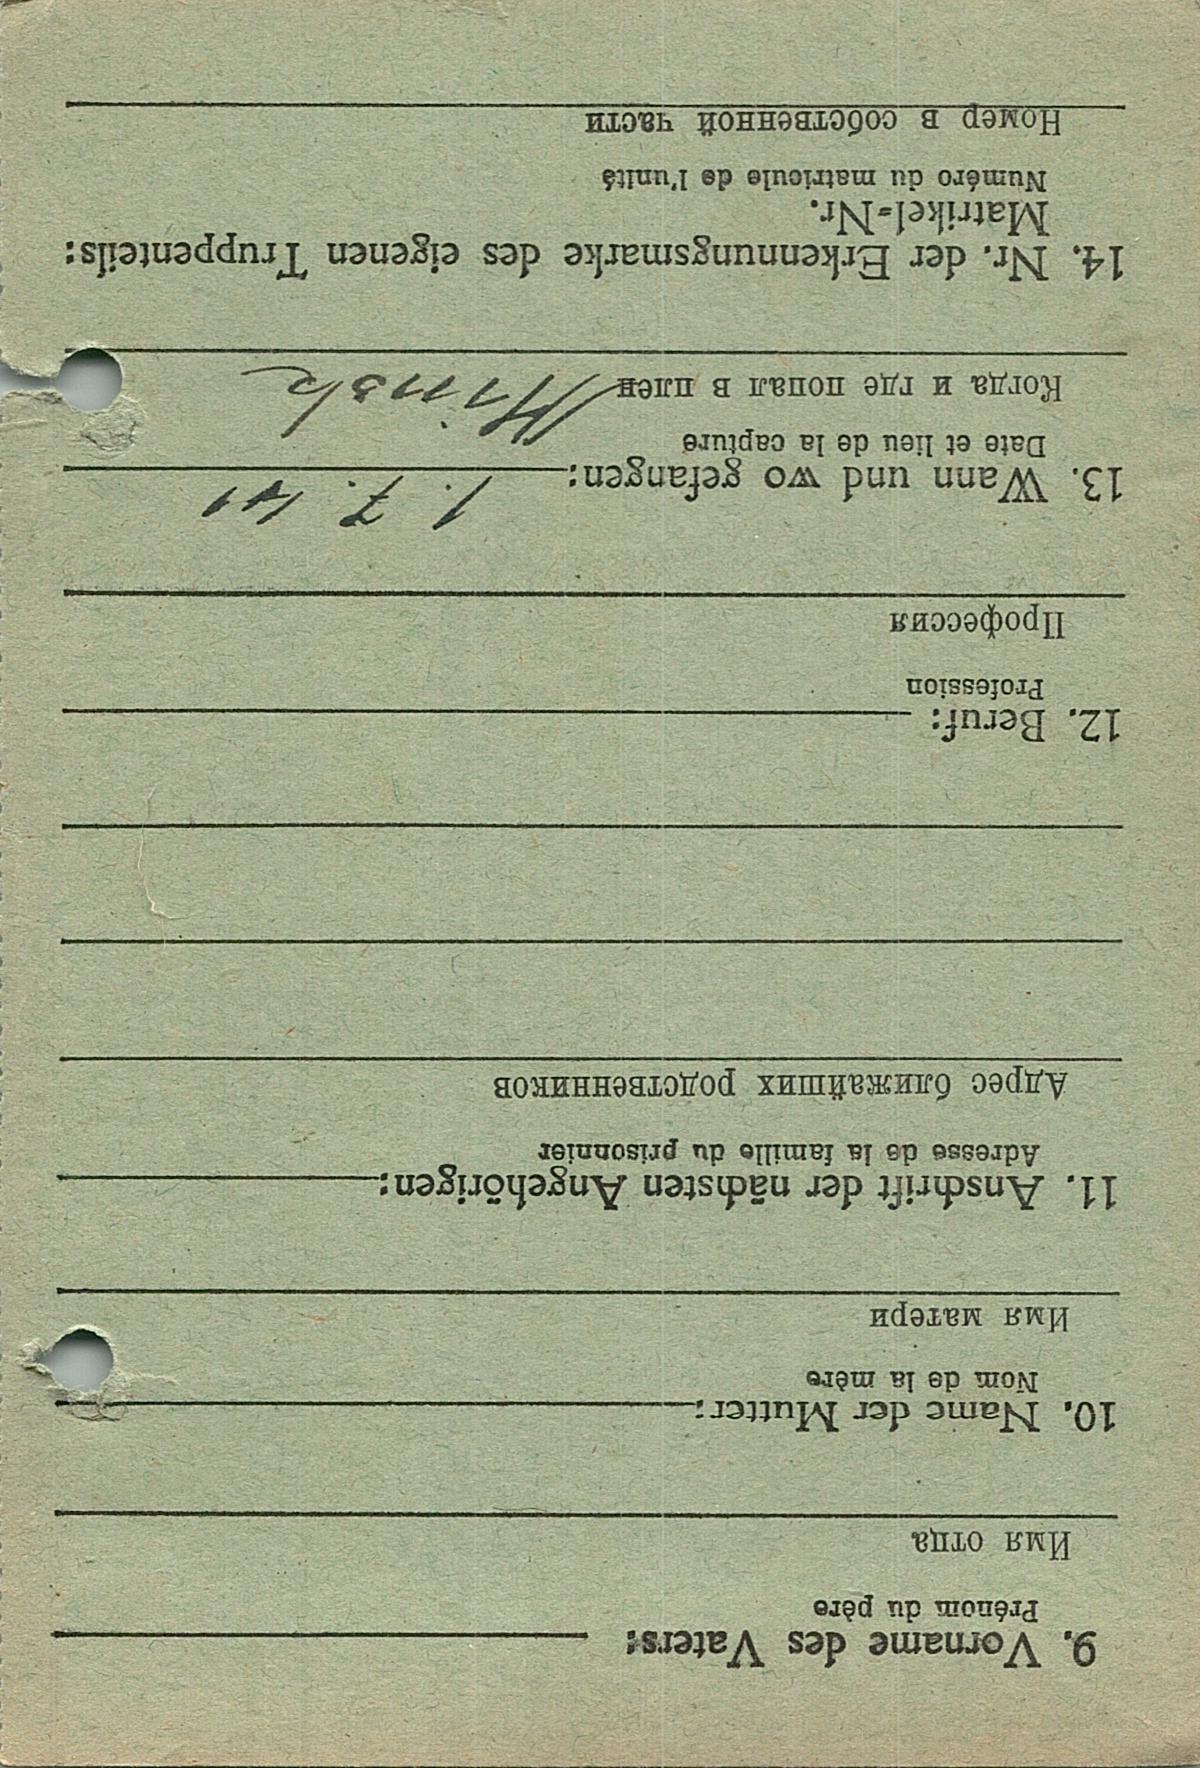 9. Vorname des Vaters:
Prénom du père
Имя отца
10. Name der Mutter:
Nom de la mère
Имя матери
11. Anschrift der nächsten Angehörigen:
Adresse de la famille du prisonnier
Адрес ближайших родственников
12. Beruf:
Profession
Профессия
13. Wann und wo gefangen: 1. 7. 41
Date et lieu de la capture
Когда и где попал в плен Minsk
14. Nr. der Erkennungsmarke des eigenen Truppenteils:
Matrikel-Nr.
Numéro du matricule de l'unité
Номер в собственной части